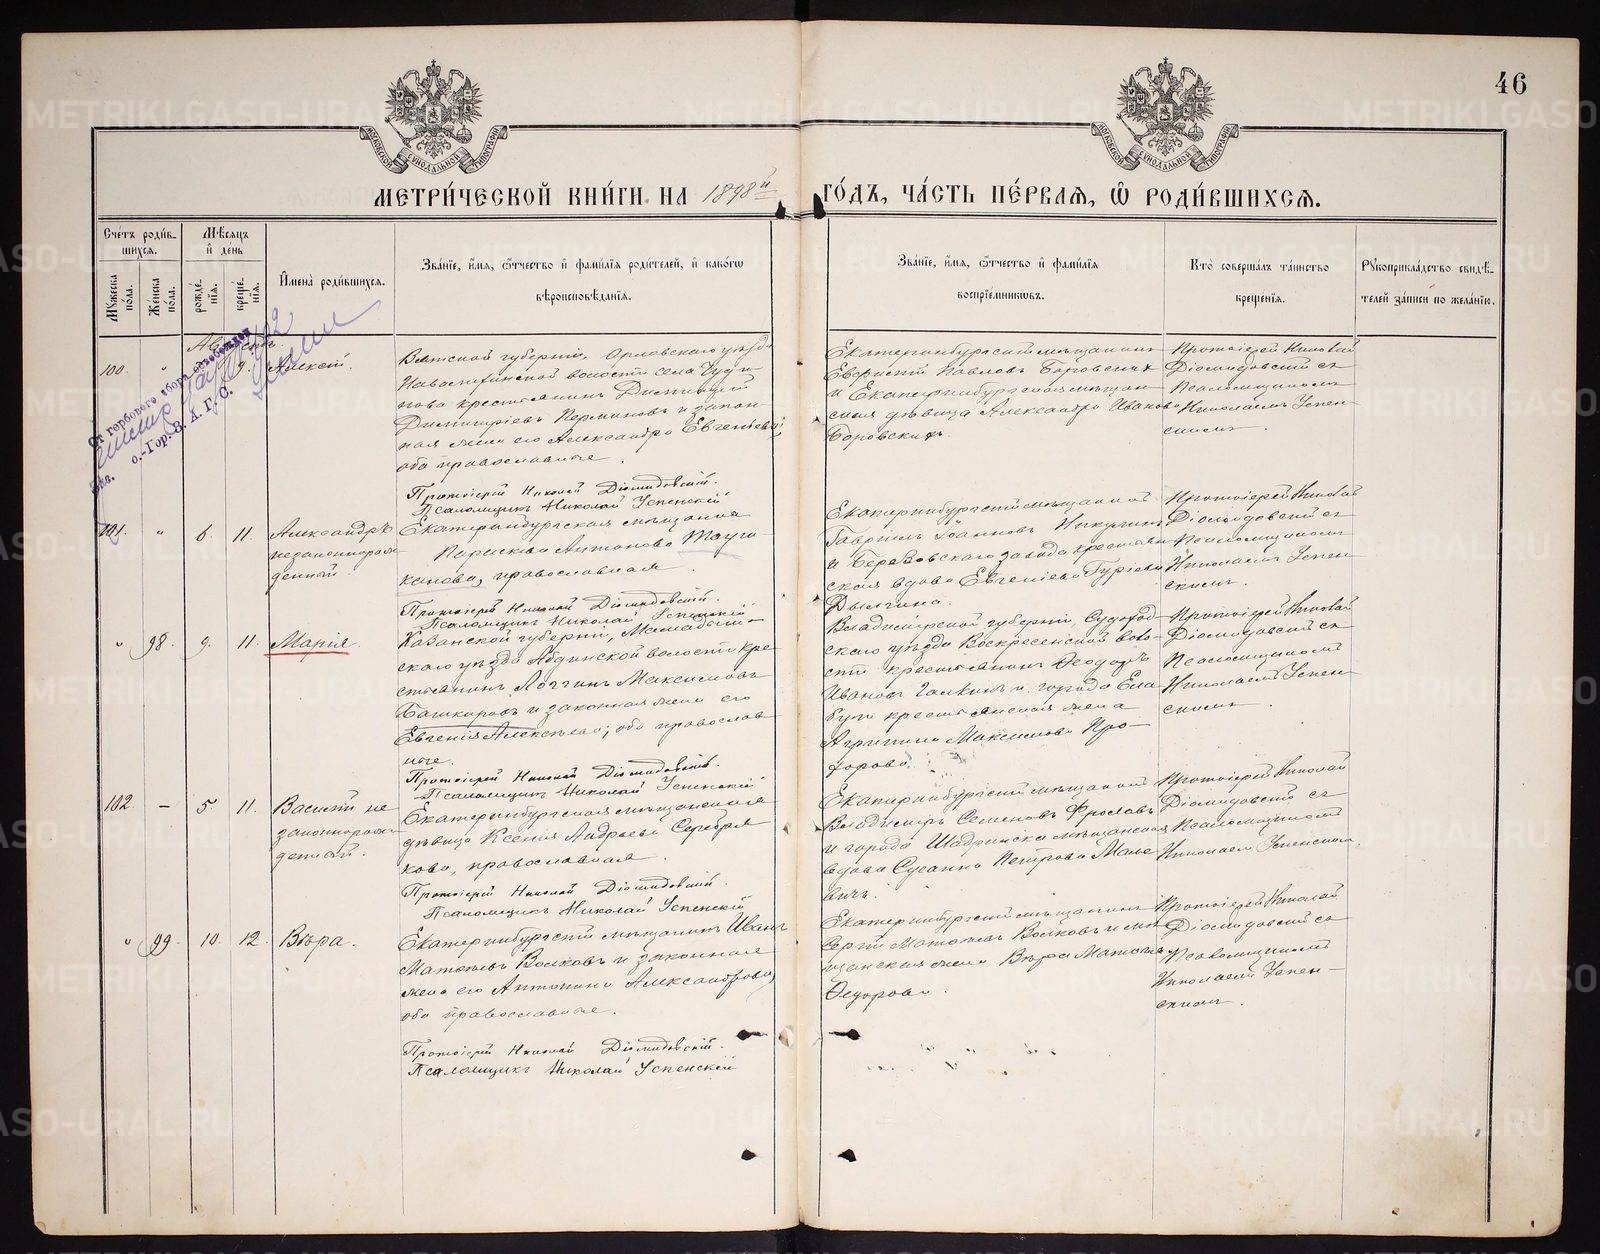 46
МОСКОВСКОЙ СѴНОДАЛЬНОЙ ТИПОГРАФІИ
МОСКОВСКОЙ СѴНОДАЛЬНОЙ ТИПОГРАФІИ
МЕТРИ́ЧЕСКОЙ КНИ́ГИ НА 1898й ГО́ДЪ, ЧА́СТЬ ПЕ́РВАѦ, Ѡ҆ РОДИ́ВШИХСѦ.
Сче́тъ роди́в-
шихсѧ.
Мꙋ́жеска пола.
Же́нска пола.
Мѣ́сѧцъ
и҆ де́нь
рожде́нїѧ.
креще́нїѧ.
И҆мена̀ роди́вшихсѧ.
Зва́нїе, и҆́мѧ, ѻ҆́тчество и҆ фами́лїѧ роди́телей, и҆ како́гѡ
вѣроисповѣ́данїѧ.
Зва́нїе, и҆́мѧ, ѻ҆́тчество и҆ фами́лїѧ
воспрїе́мниковъ.
Кто̀ соверша́лъ та́инство
креще́нїѧ.
Рꙋкоприкла́дство свидѣ́-
телей за́писи по жела́нїю.
От гербового сбора освобожден
Августъ.
100. " 9. Алексѣй.
Вятской губерніи, Орловскаго уѣзда
волости села Чуди-
нова крестьянинъ Дмитрій
Дмитріевъ Перминовъ и закон-
ная жена его Александра Евгеніева;
оба православные.
Протоіерей Николай Діомидовскій.
Псаломщикъ Николай Успенскій
Екатеринбургскій мѣщанинъ
Евгеній Павловъ Боровскихъ
и Екатеринбургская мѣщан-
ская дѣвица Александра Иванова
Боровскихъ.
Протоіерей Николай
Діомидовскій съ
Псаломщикомъ
Николаемъ Успен-
скимъ.
101. " 6. 11. Александръ
незаконнорож-
денный.
Екатеринбургская мѣщанка
Параскева Антонова
канова, православная.
Протоіерей Николай Діомидовскій.
Псаломщикъ Николай Успенскій
Екатеринбургскій мѣщанинъ
Гавріилъ Іоанновъ Никулинъ
и Березовскаго завода крестьян-
ская вдова Евгенія Гуріева
Протоіерей Николай
Діомидовскій съ
Псаломщикомъ
Николаемъ Успен-
скимъ.
" 98. 9. 11. Марія.
Казанской губерніи, Мамадыш-
скаго уѣзда Абдинской волости кре-
стьянинъ Логгинъ Максимовъ
Башкировъ и законная жена его
Евгенія Алексѣева; оба православ-
ные.
Протоіерей Николай Діомидовскій.
Псаломщикъ Николай Успенскій
Владимірской губерніи, Судогод-
скаго уѣзда Воскресенской воло-
сти крестьянинъ Ѳеодоръ
Ивановъ Галкинъ и города Ела-
буги крестьянская жена
Агрипина Максимова Про-
форова.
Протоіерей Николай
Діомидовскій съ
Псаломщикомъ
Николаемъ Успен-
скимъ.
102. – 5 11. Василій не-
законнорож-
денный.
Екатеринбургская мѣщанская
дѣвица Ксенія Андреева Серебря-
кова, православная.
Протоіерей Николай Діомидовскій.
Псаломщикъ Николай Успенскій
Екатеринбургскій мѣщанинъ
Владиміръ Семеновъ Фроловъ
и города Шадринска мѣщанская
вдова Сусанна Петрова Мале-
вичъ.
Протоіерей Николай
Діомидовскій съ
Псаломщикомъ
Николаемъ Успенскимъ.
" 99. 10. 12. Вѣра.
Екатеринбургскій мѣщанинъ Иванъ
Матвѣевъ Волковъ и законная
жена его Антонина Александрова,
оба православные.
Протоіерей Николай Діомидовскій.
Псаломщикъ Николай Успенскій
Екатеринбургскій мѣщанинъ
Сергій Матвѣевъ Волковъ и мѣ-
щанская жена Вѣра Матвѣева
Ѳедорова.
Протоіерей Николай
Діомидовскій съ
Псаломщикомъ
Николаемъ Успен-
скимъ.
METRIKI.GASO-URAL.RU